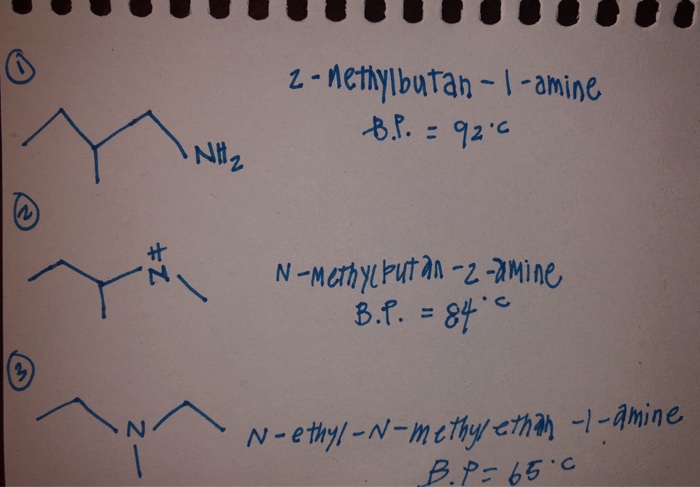 ①
2-methylbutan-1-amine
B.P. = 92°C
NH2
②
H
N
N-methylbutan-2-amine
B.P. = 84°C
③
N
N-ethyl-N-methylethan-1-amine
B.P = 65°C